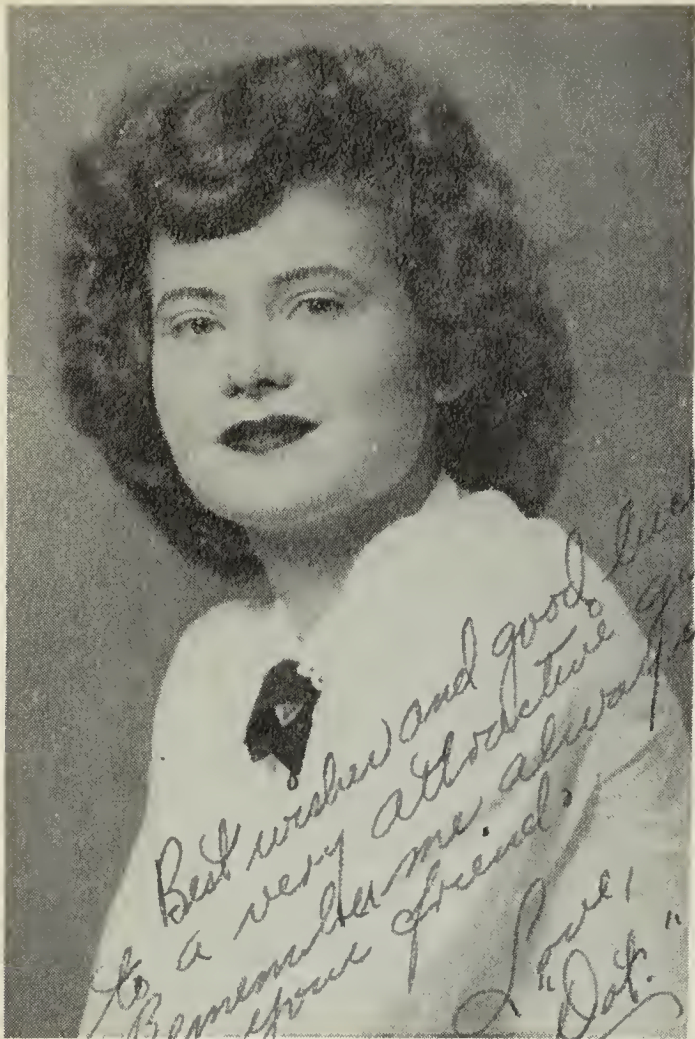 Best wishes and good luck
to a very attractive
Remember me always
your friend.
Love,
"Dot."